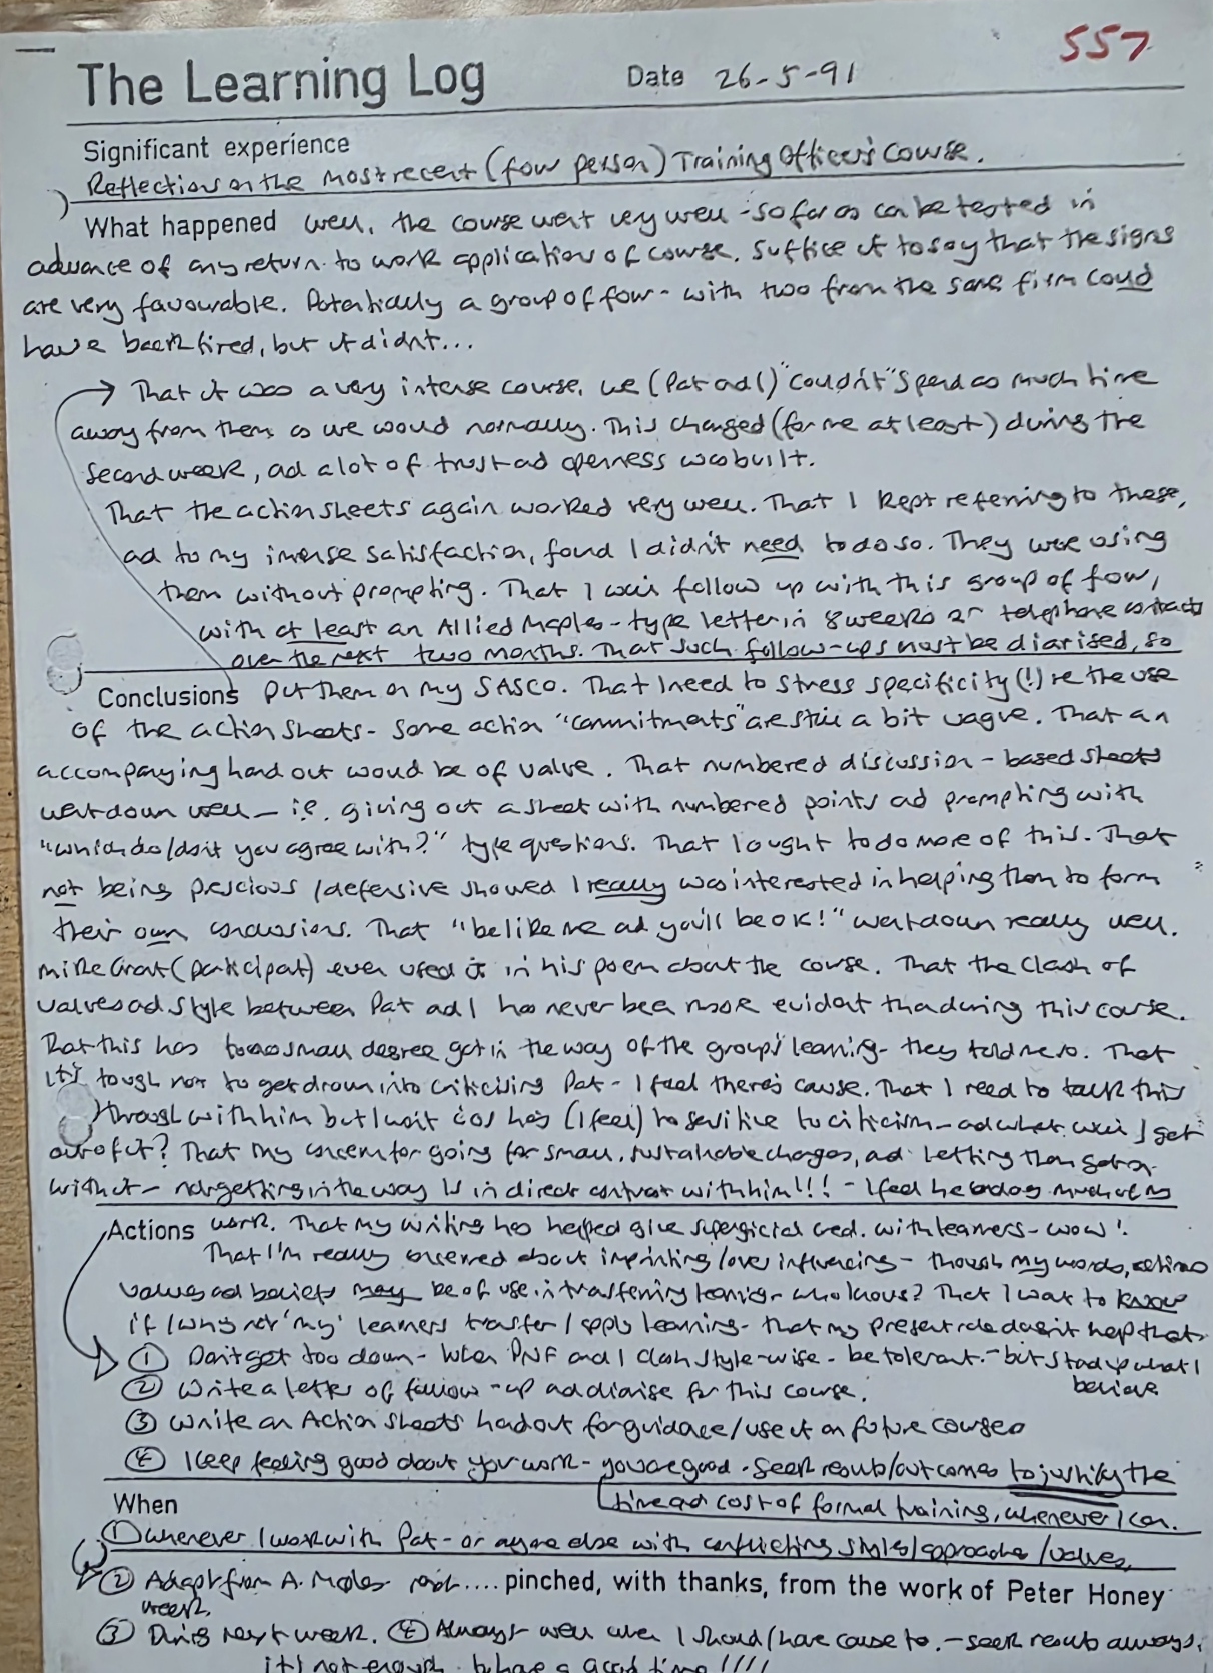 557
The Learning Log Date 26-5-91
Significant experience
Reflections on the most recent (four person) Training Officer's Course.
What happened Well, the course went very well - so far as can be tested in
advance of any return to work application of course. Suffice it to say that the signs
are very favourable. Potentially a group of four - with two from the same firm could
have backfired, but it didn't...
That it was a very intense course. We (Pat and I) "couldn't" spend as much time
away from them as we would normally. This changed (for me at least) during the
second week, and a lot of trust and openness was built.
That the action sheets again worked very well. That I kept referring to these,
and to my immense satisfaction, found I didn't need to do so. They were using
them without prompting. That I will follow up with this group of four,
with at least an Allied Maples-type letter in 8 weeks or telephone contacts
over the next two months. That such follow-ups must be diarised, so
Conclusions put them on my SASCO. That I need to stress specificity (!) re the use
of the action sheets - some action "commitments" are still a bit vague. That an
accompanying handout would be of value. That numbered discussion-based sheets
went down well - i.e. giving out a sheet with numbered points and prompting with
"which do/don't you agree with?" type questions. That I ought to do more of this. That
not being prescious/defensive showed I really was interested in helping them to form
their own conclusions. That "be like me and you'll be OK!" went down really well.
Mike Grant (participant) even used it in his poem about the course. That the clash of
values and style between Pat and I has never been more evident than during this course.
That this has to no small degree got in the way of the group's learning - they told me so. That
it's tough not to get drawn into criticising Pat - I feel there's cause. That I need to talk this
through with him but I won't cos he's (I feel) so sensitive to criticism - and what will I get
out of it? That my concern for going for small, sustainable changes, and letting them get on
with it - not getting in the way is in direct contrast with him!!! - I feel he undoes much of my
Actions work. That my writing has helped give superficial cred. with learners - wow!
That I'm really concerned about imprinting/over influencing - though my words, actions
values and beliefs may be of use in transferring learning - who knows? That I want to know
if/why not 'my' learners transfer/apply learning - that my present role doesn't help that.
① Don't get too down - when PNF and I clash style-wise - be tolerant - but stand up what I
believe
② Write a letter of follow-up and diarise for this course.
③ Write an Action sheets handout for guidance/use it on future courses
④ Keep feeling good about your work - you are good. Seek results/outcomes to justify the
time and cost of formal training, whenever I can.
When
① Whenever I work with Pat - or anyone else with conflicting styles/approaches/values.
② Adapt from A. Maples .... pinched, with thanks, from the work of Peter Honey
week.
③ During next week. ④ Always well when I should/have cause to. - seek results always,
it's not enough to have a good time!!!!